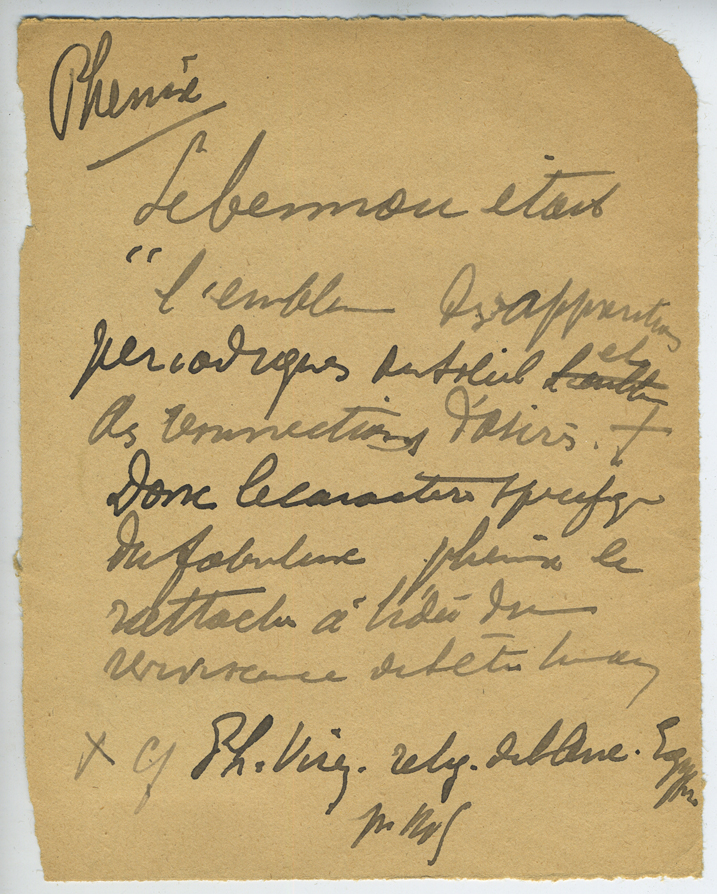 Phenix
Le bennou était
"l'emblem des apparitions
périodiques du soleil et
des résurrections d'Osiris. +
Donc le caractère spécifique
du fabuleux phenix le
rattache à l'idée du
reviviscence de l'être humain
+ cf Ph. Virey. relig. de l'Anc. Egypte
p.